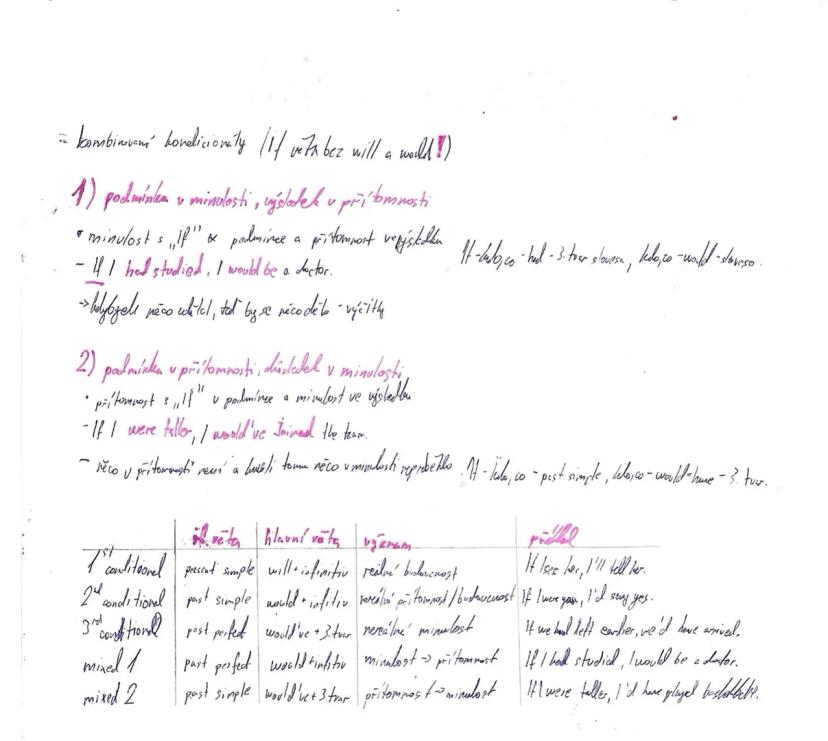 = kombinovaní kondicionály (If věta bez will a would!)
1) podmínka v minulosti, výsledek v přítomnosti
• minulost s „If" v podmínce a přítomnost ve výsledku
If - kdo, co - had - 3. tvar slovesa, kdo, co - would - sloveso.
- If I had studied, I would be a doctor.
→ kdybych něco udělal, teď by se něco dělo - výčitky
2) podmínka v přítomnosti, důsledek v minulosti
• přítomnost s „If" v podmínce a minulost ve výsledku
- If I were taller, I would've joined the team.
- něco v přítomnosti není a kvůli tomu něco v minulosti neproběhlo. If - kdo, co - past simple, kdo, co - would - have - 3. tvar.
if věta hlavní věta význam příklad
1st conditional present simple will + infinitiv reálná budoucnost If I see her, I'll tell her.
2nd conditional past simple would + infitiv nereálná přítomnost/budoucnost If I were you, I'd say yes.
3rd conditional past perfect would've + 3. tvar nereálná minulost If we had left earlier, we'd have arrived.
mixed 1 past perfect would + infitiv minulost → přítomnost If I had studied, I would be a doctor.
mixed 2 past simple would've + 3 tvar přítomnost → minulost If I were taller, I'd have played basketball.